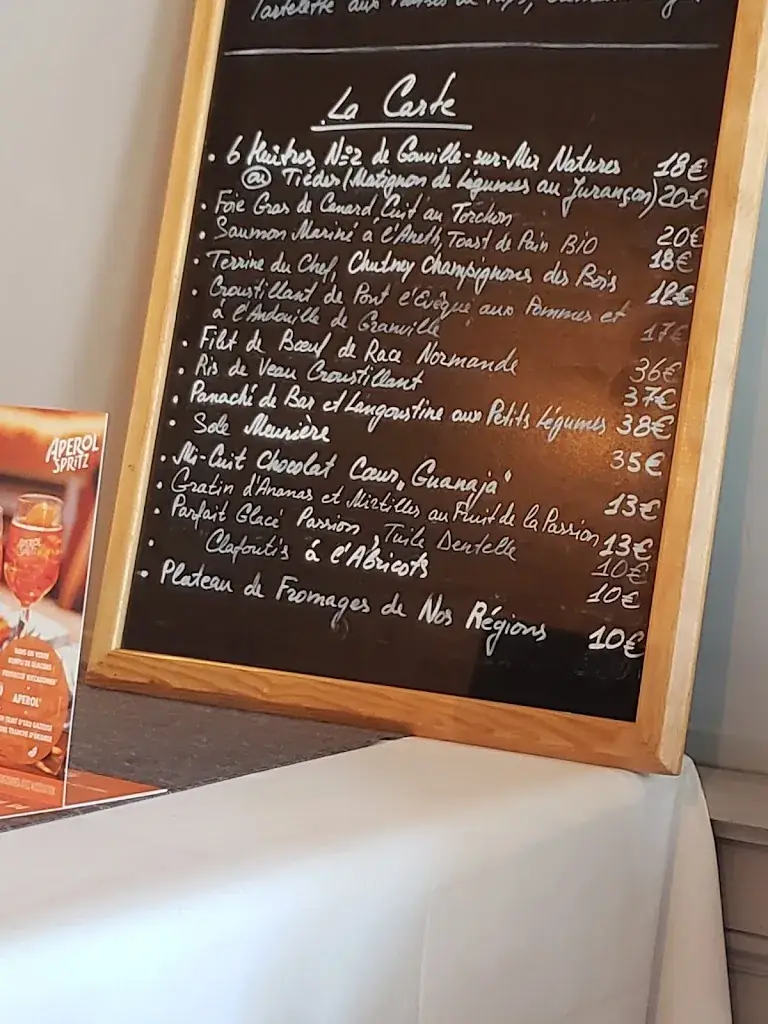 Tartelette aux
La Carte
• 6 Huîtres N=2 de Gouville-sur-Mer Natures 18€
ou Tièdes (Matignon de Légumes au Jurançon) 20€
• Foie Gras de Canard, Cuit au Torchon 20€
• Saumon Mariné à l'Aneth, Toast de Pain BIO 18€
• Terrine du Chef, Chutney Champignons des Bois 12€
• Croustillant de Pont l'Evêque aux Pommes et
à l'Andouille de Granville 17€
• Filet de Bœuf de Race Normande 36€
• Ris de Veau Croustillant 37€
• Panaché de Bar et Langoustine aux Petits Légumes 38€
• Sole Meunière 35€
• Mi-Cuit Chocolat Cœur „Guanaja" 13€
• Gratin d'Ananas et Mirtilles au Fruit de la Passion 13€
• Parfait Glacé Passion, Tuile Dentelle 10€
• Clafoutis à l'Abricots 10€
• Plateau de Fromages de Nos Régions 10€
APEROL
SPRITZ
APEROL
SPRITZ
DANS UN VERRE
REMPLI DE GLAÇONS
APEROL